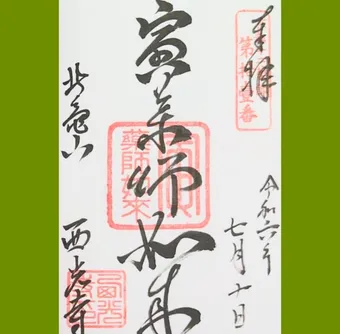 奉拝
第拾壹番
令和六年
七月十日
寅薬師如来
藥師如來
北亀山
西光寺